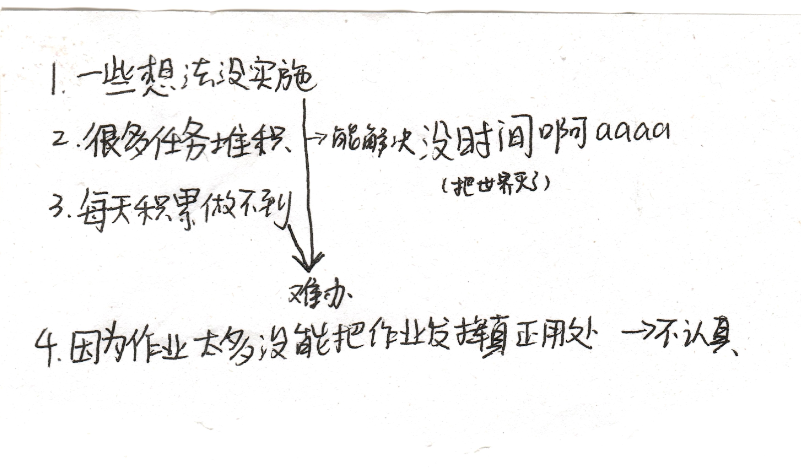 1. 一些想法没实施
2. 很多任务堆积 →能解决 没时间啊啊aaaa
(把世界灭了)
3. 每天积累做不到
难办
4. 因为作业太多没能把作业发挥真正用处 →不认真